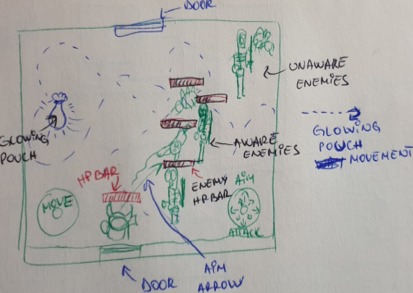 DOOR
UNAWARE
ENEMIES
GLOWING
POUCH
AWARE
ENEMIES
GLOWING
POUCH
MOVEMENT
HP BAR
ENEMY
HP BAR
AIM
MOVE
ATTACK
DOOR
AIM
ARROW